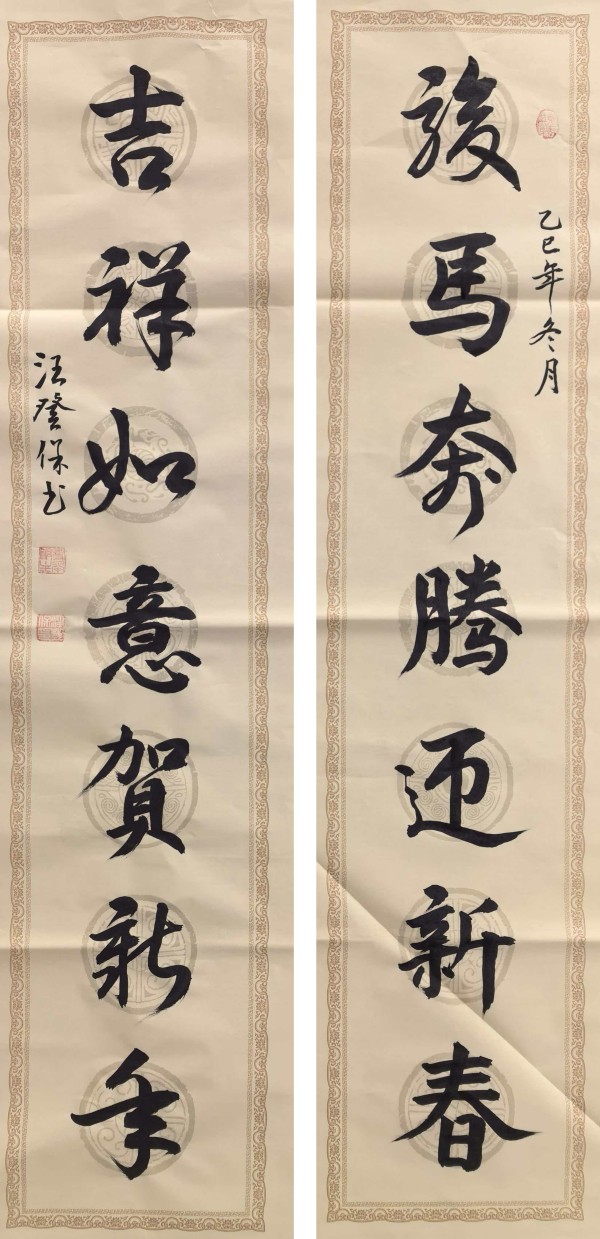 骏馬奔腾迎新春
乙巳年冬月
吉祥如意賀新年
汪登保书